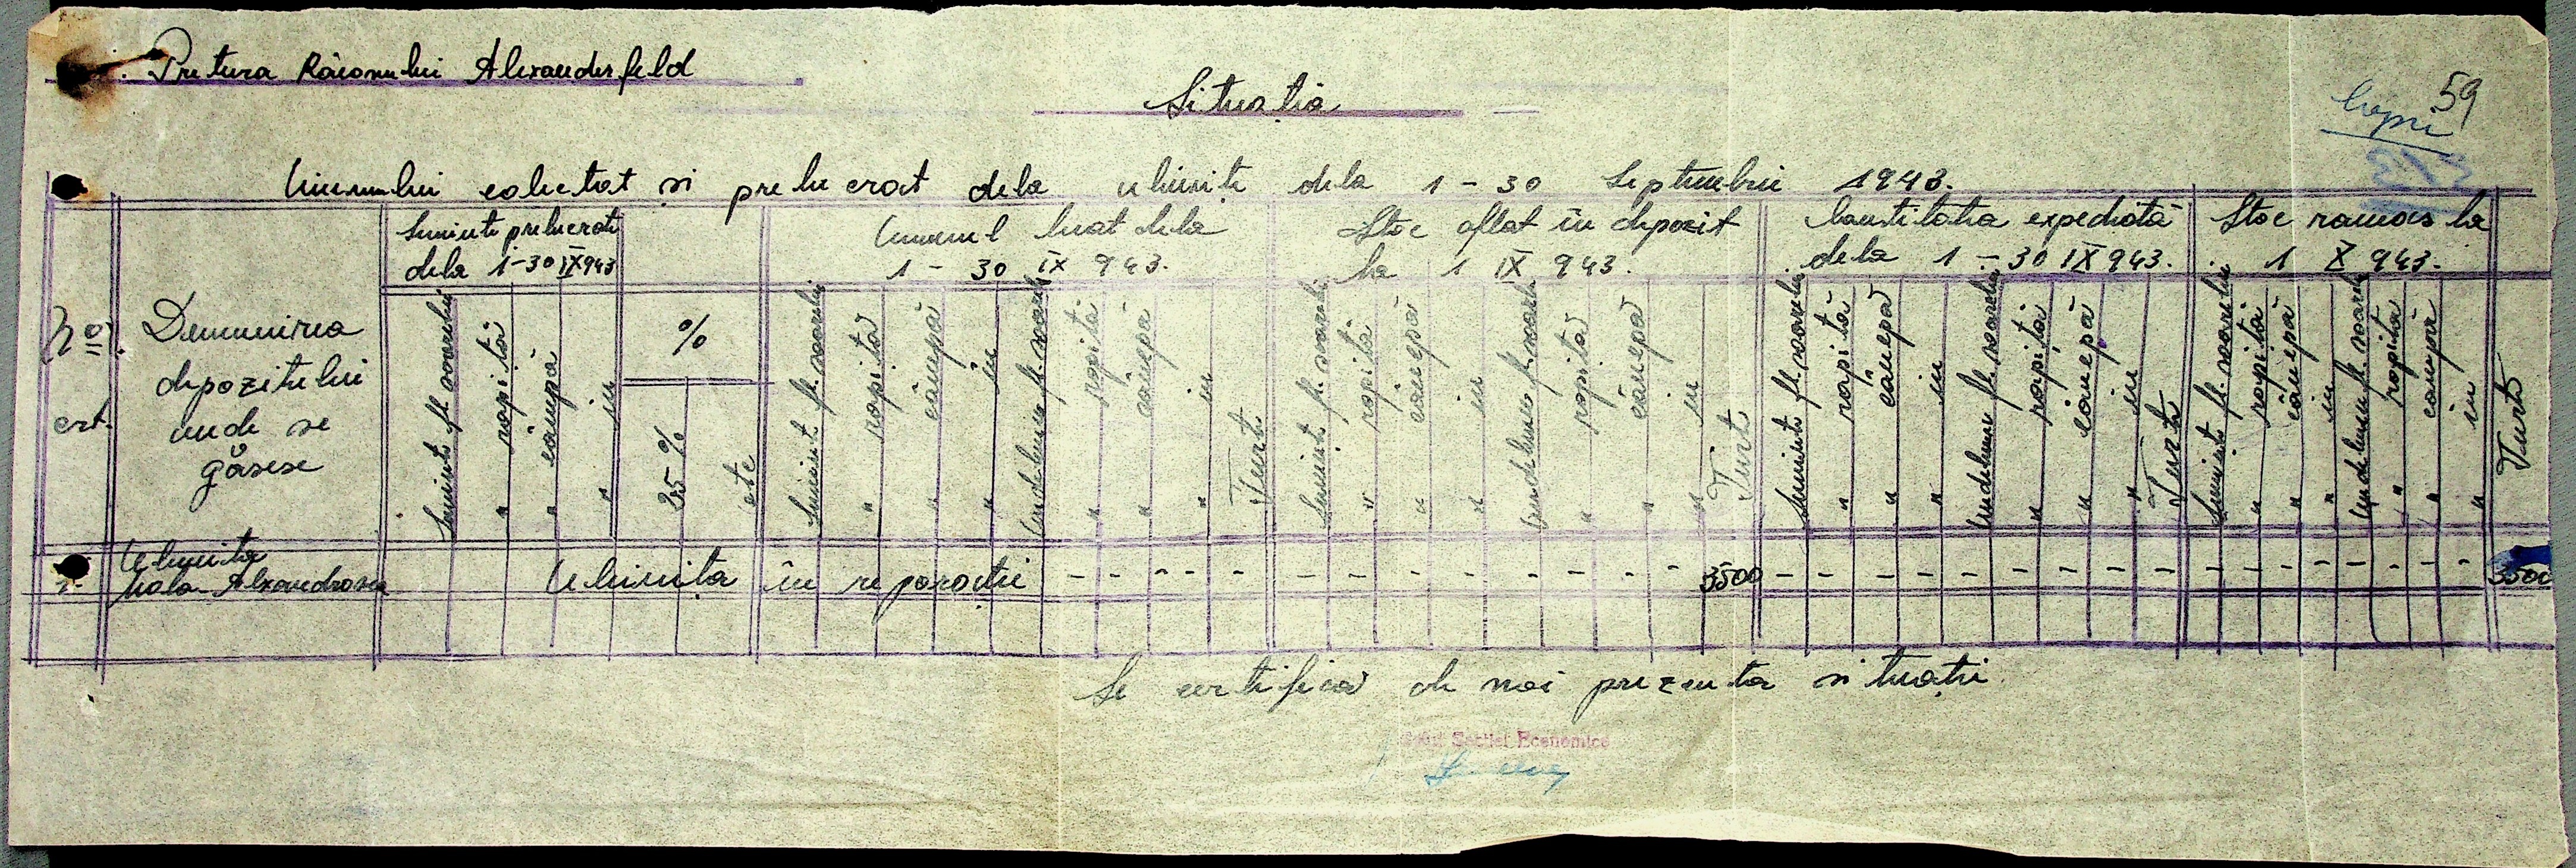 Pretura Raionului Alexanderfeld
Situația
59
Copie
Uleiului colectat și prelucrat dela uleinițe dela 1 - 30 Septembrie 1943.
No crt.
Denumirea
depozitului
unde se
găsesc
Seminte prelucrate
dela 1-30 IX 943
Seminte fl. soarelui
" rapită
" cânepă
" in
%
25 %
etc
Uleiul luat dela
1 - 30 IX 943.
Seminte fl. soarelui
" rapită
" cânepă
" in
Undelemn fl. soarelui
" rapită
" cânepă
" in
Turte
Stoc aflat în depozit
la 1 IX 943.
Seminte fl. soarelui
" rapită
" cânepă
" in
Undelemn fl. soarelui
" rapită
" cânepă
" in
Turte
Cantitatea expediată
dela 1 - 30 IX 943.
Seminte fl. soarelui
" rapită
" cânepă
" in
Undelemn fl. soarelui
" rapită
" cânepă
" in
Turte
Stoc ramas la
1 X 943.
Seminte fl. soarelui
" rapită
" cânepă
" in
Undelemn fl. soarelui
" rapita
" canepă
" in
Turte
1. Uleinița
Mala-Alexandrovca
Uleinița în reparație - - - - - - - - - - - - - 3500 - - - - - - - - - - - - - - - - - 3500
Se certifică de noi prezenta situație.
Șeful Secției Economice